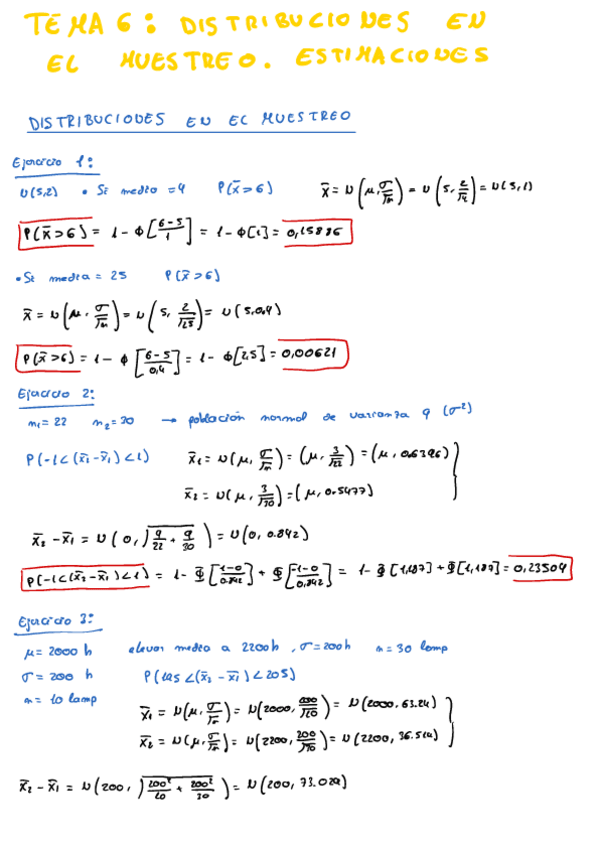 TEMA 6: DISTRIBUCIONES EN
EL MUESTREO. ESTIMACIONES
DISTRIBUCIONES EN EL MUESTREO
Ejercicio 1:
N(5,2) • Si media = 4 P(x̄>6) x̄ = N(μ, σ/√n) = N(5, 2/√4) = N(5,1)
P(x̄>6) = 1 - Φ[6-5/1] = 1 - Φ[1] = 0,15886
• Si media = 25 P(x̄>6)
x̄ = N(μ, σ/√n) = N(5, 2/√25) = N(5,0.4)
P(x̄>6) = 1 - Φ[6-5/0,4] = 1 - Φ[2,5] = 0,00621
Ejercicio 2:
n₁ = 22 n₂ = 30 → población normal de varianza 9 (σ²)
P(-1<(x̄₂-x̄₁)<1) x̄₁ = N(μ, σ/√n) = (μ, 3/√22) = (μ, 0.6396)
x̄₂ = N(μ, 3/√30) = (μ, 0.5477)
x̄₂ - x̄₁ = N(0, √9/22 + 9/30) = N(0, 0.842)
P(-1<(x̄₂-x̄₁)<1) = 1 - Φ[1-0/0.842] + Φ[1-0/0,842] = 1 - Φ[1,187] + Φ[1,187] = 0,23504
Ejercicio 3:
μ = 2000 h elevar media a 2200h, σ = 200h n = 30 lamp
σ = 200 h P(195<(x̄₂-x̄₁)<205)
n = 10 lamp
x̄₁ = N(μ, σ/√n) = N(2000, 200/√10) = N(2000, 63.24)
x̄₂ = N(μ, σ/√n) = N(2200, 200/√30) = N(2200, 36.514)
x̄₂ - x̄₁ = N(200, √200²/10 + 200²/30) = N(200, 73.029)